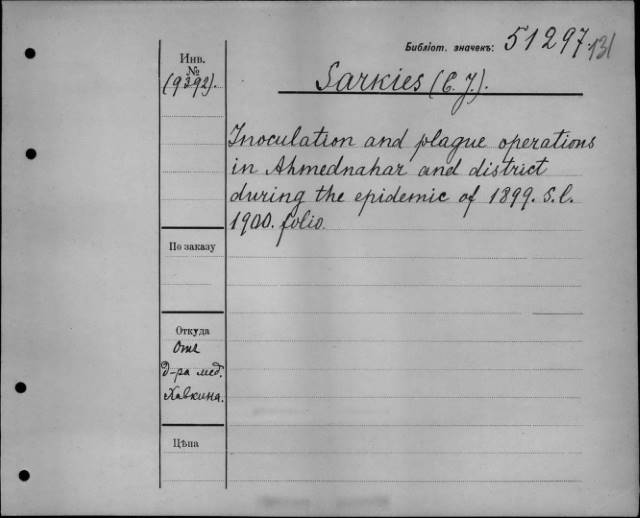 Библіот. значекъ: 51297.131
Инв.
№
(9392).
Sarkies (C. J.).
Inoculation and plague operations
in Ahmednahar and district
during the epidemic of 1899. S. l.
1900. folio.
По заказу
Откуда
Отъ
Д-ра мед.
Хавкина.
Цѣна